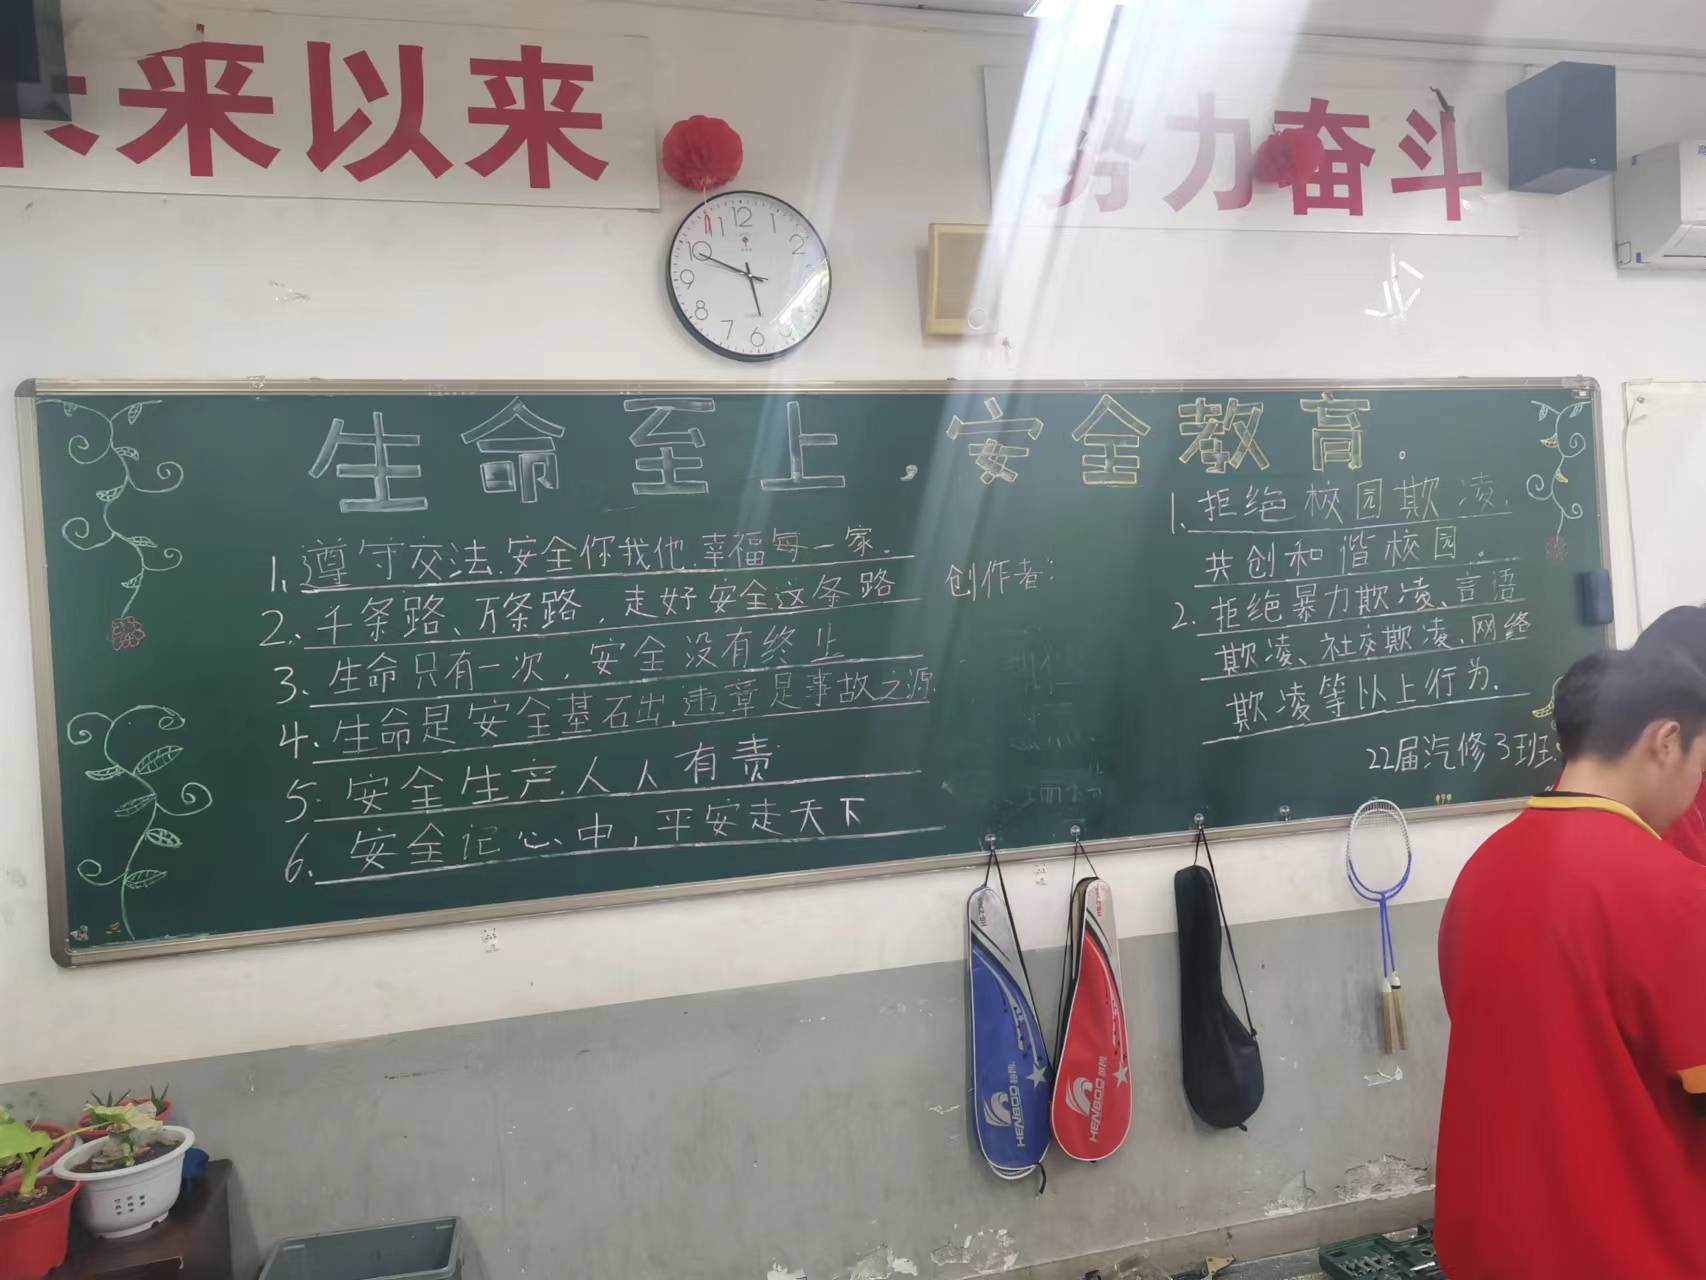 未来以来
努力奋斗
生命至上,安全教育.
1.遵守交法.安全你我他.幸福每一家.
2.千条路、万条路,走好安全这条路
3.生命只有一次,安全没有终止
4.生命是安全基石出.违章是事故之源.
5.安全生产.人人有责
6.安全记心中,平安走天下
创作者:
1.拒绝校园欺凌.
共创和谐校园.
2.拒绝暴力欺凌、言语
欺凌、社交欺凌、网络
欺凌等以上行为.
22届汽修3班
12 1 2 6 7 8 9 10 11
HENBOO
HENBOO